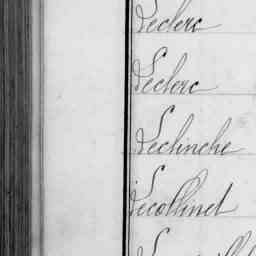 Leclerc
Leclerc
Leclinche
Lecollinet